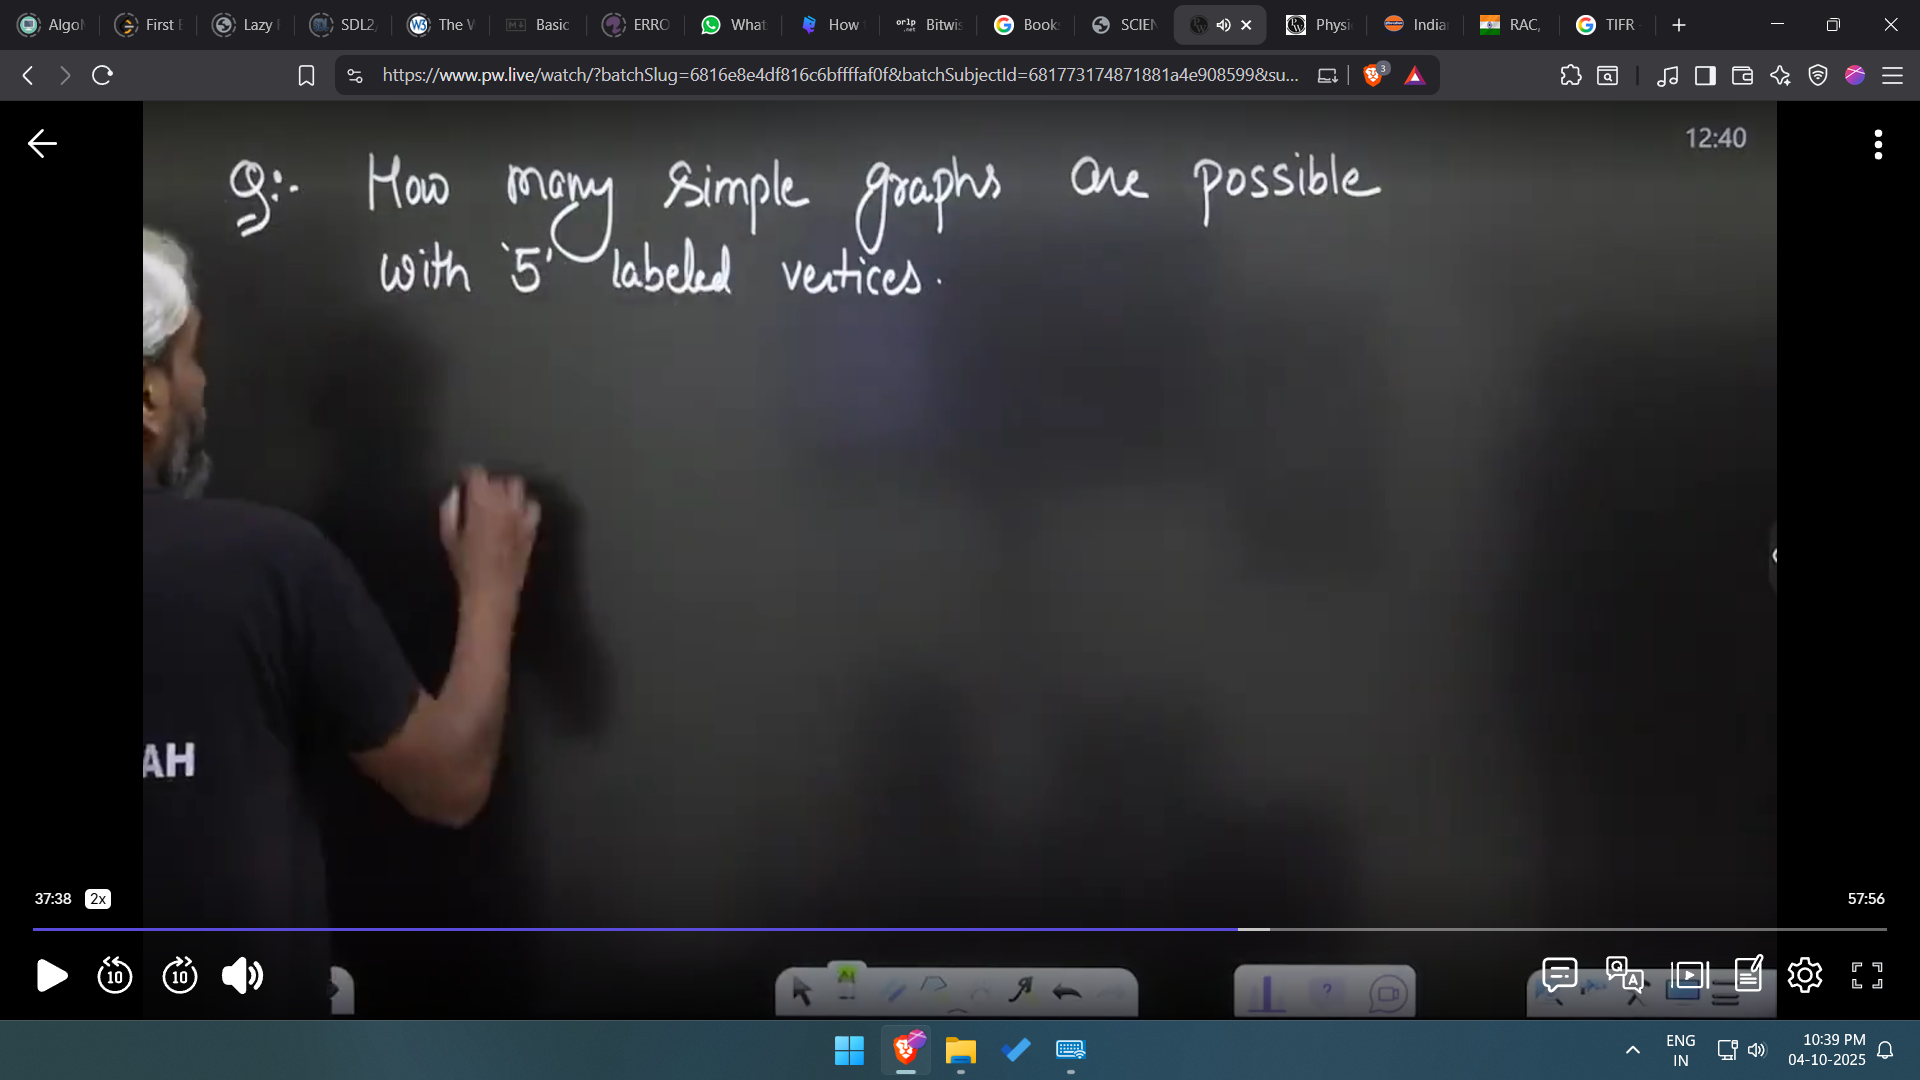 Algo
First E
Lazy
SDL2
The W
Basic
ERRO
What
How
orlp
.net
Bitwis
Book
SCIEN
Physi
India
RAC,
TIFR
https://www.pw.live/watch/?batchSlug=6816e8e4df816c6bffffaf0f&batchSubjectId=681773174871881a4e908599&su...
3
12:40
Q:- How many simple graphs are possible
with '5' labeled vertices.
AH
37:38 2x
57:56
10
10
ENG
IN
10:39 PM
04-10-2025